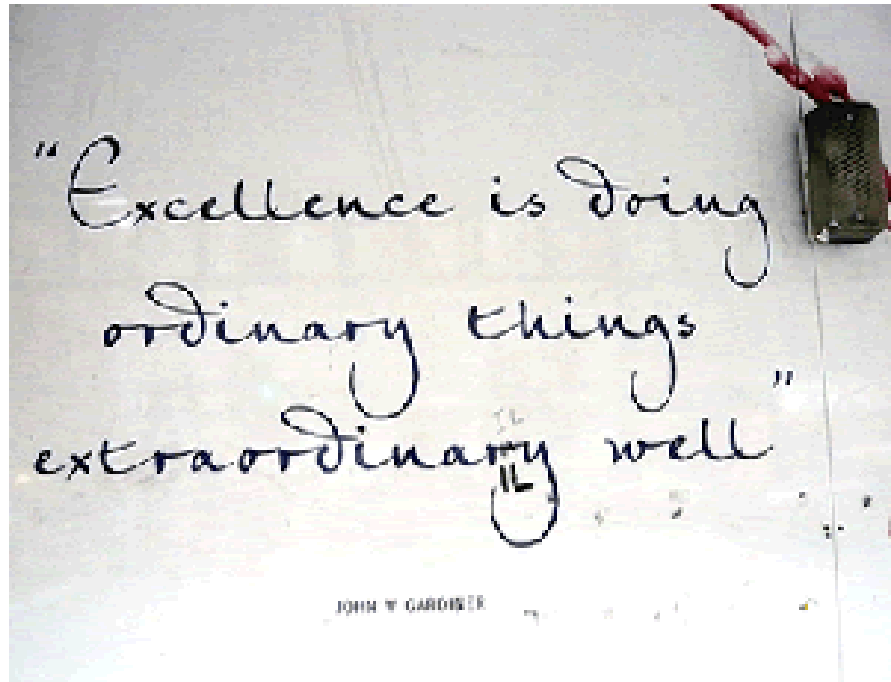 "Excellence is doing
ordinary things
extraordinary well"
IL
IL
JOHN W GARDINER